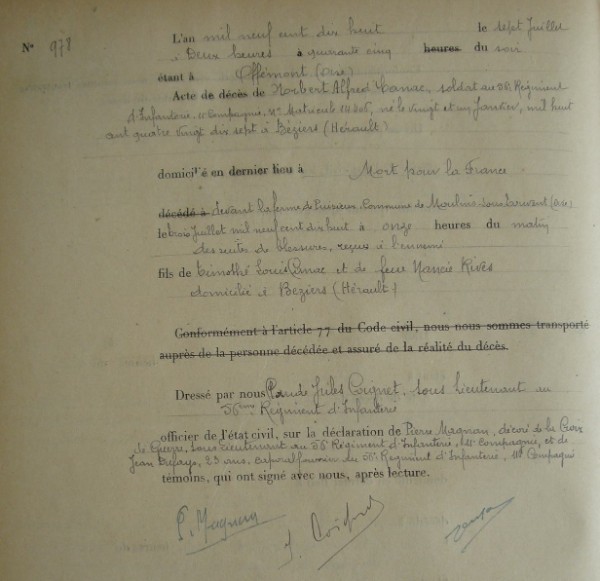 N° 978
L'an mil neuf cent dix huit le sept Juillet
à Deux heures à quarante cinq heures du soir
étant à Offémont (Oise)
Acte de décès de Norbert Alfred Canac, soldat au Régiment
d'Infanterie, 11e Compagnie, Matricule né le vingt et un Janvier, mil huit
cent quatre vingt dix sept à Béziers (Hérault)
domicilié en dernier lieu à Mort pour la France
décédé à devant la ferme de Puiseux, Commune de Moulins sous Touvent (Oise)
le trois Juillet mil neuf cent dix huit à onze heures du matin
des suites de blessures, reçues à l'ennemi
fils de Timothé Louis Canac et de feue Nancis Rives
domicilié à Béziers (Hérault)
Conformément à l'article 77 du Code civil, nous nous sommes transporté
auprès de la personne décédée et assuré de la réalité du décès.
Dressé par nous Jules Coignet, sous Lieutenant au
56ème Régiment d'Infanterie
officier de l'état civil, sur la déclaration de Pierre Magnan, décoré de la Croix
de Guerre, sous Lieutenant au 56e Régiment d'Infanterie, 11e Compagnie, et de
Jean 23 ans, caporal fourrier au 56e Régiment d'Infanterie, 11e Compagnie
témoins, qui ont signé avec nous, après lecture.
P. Magnan J. Coignet